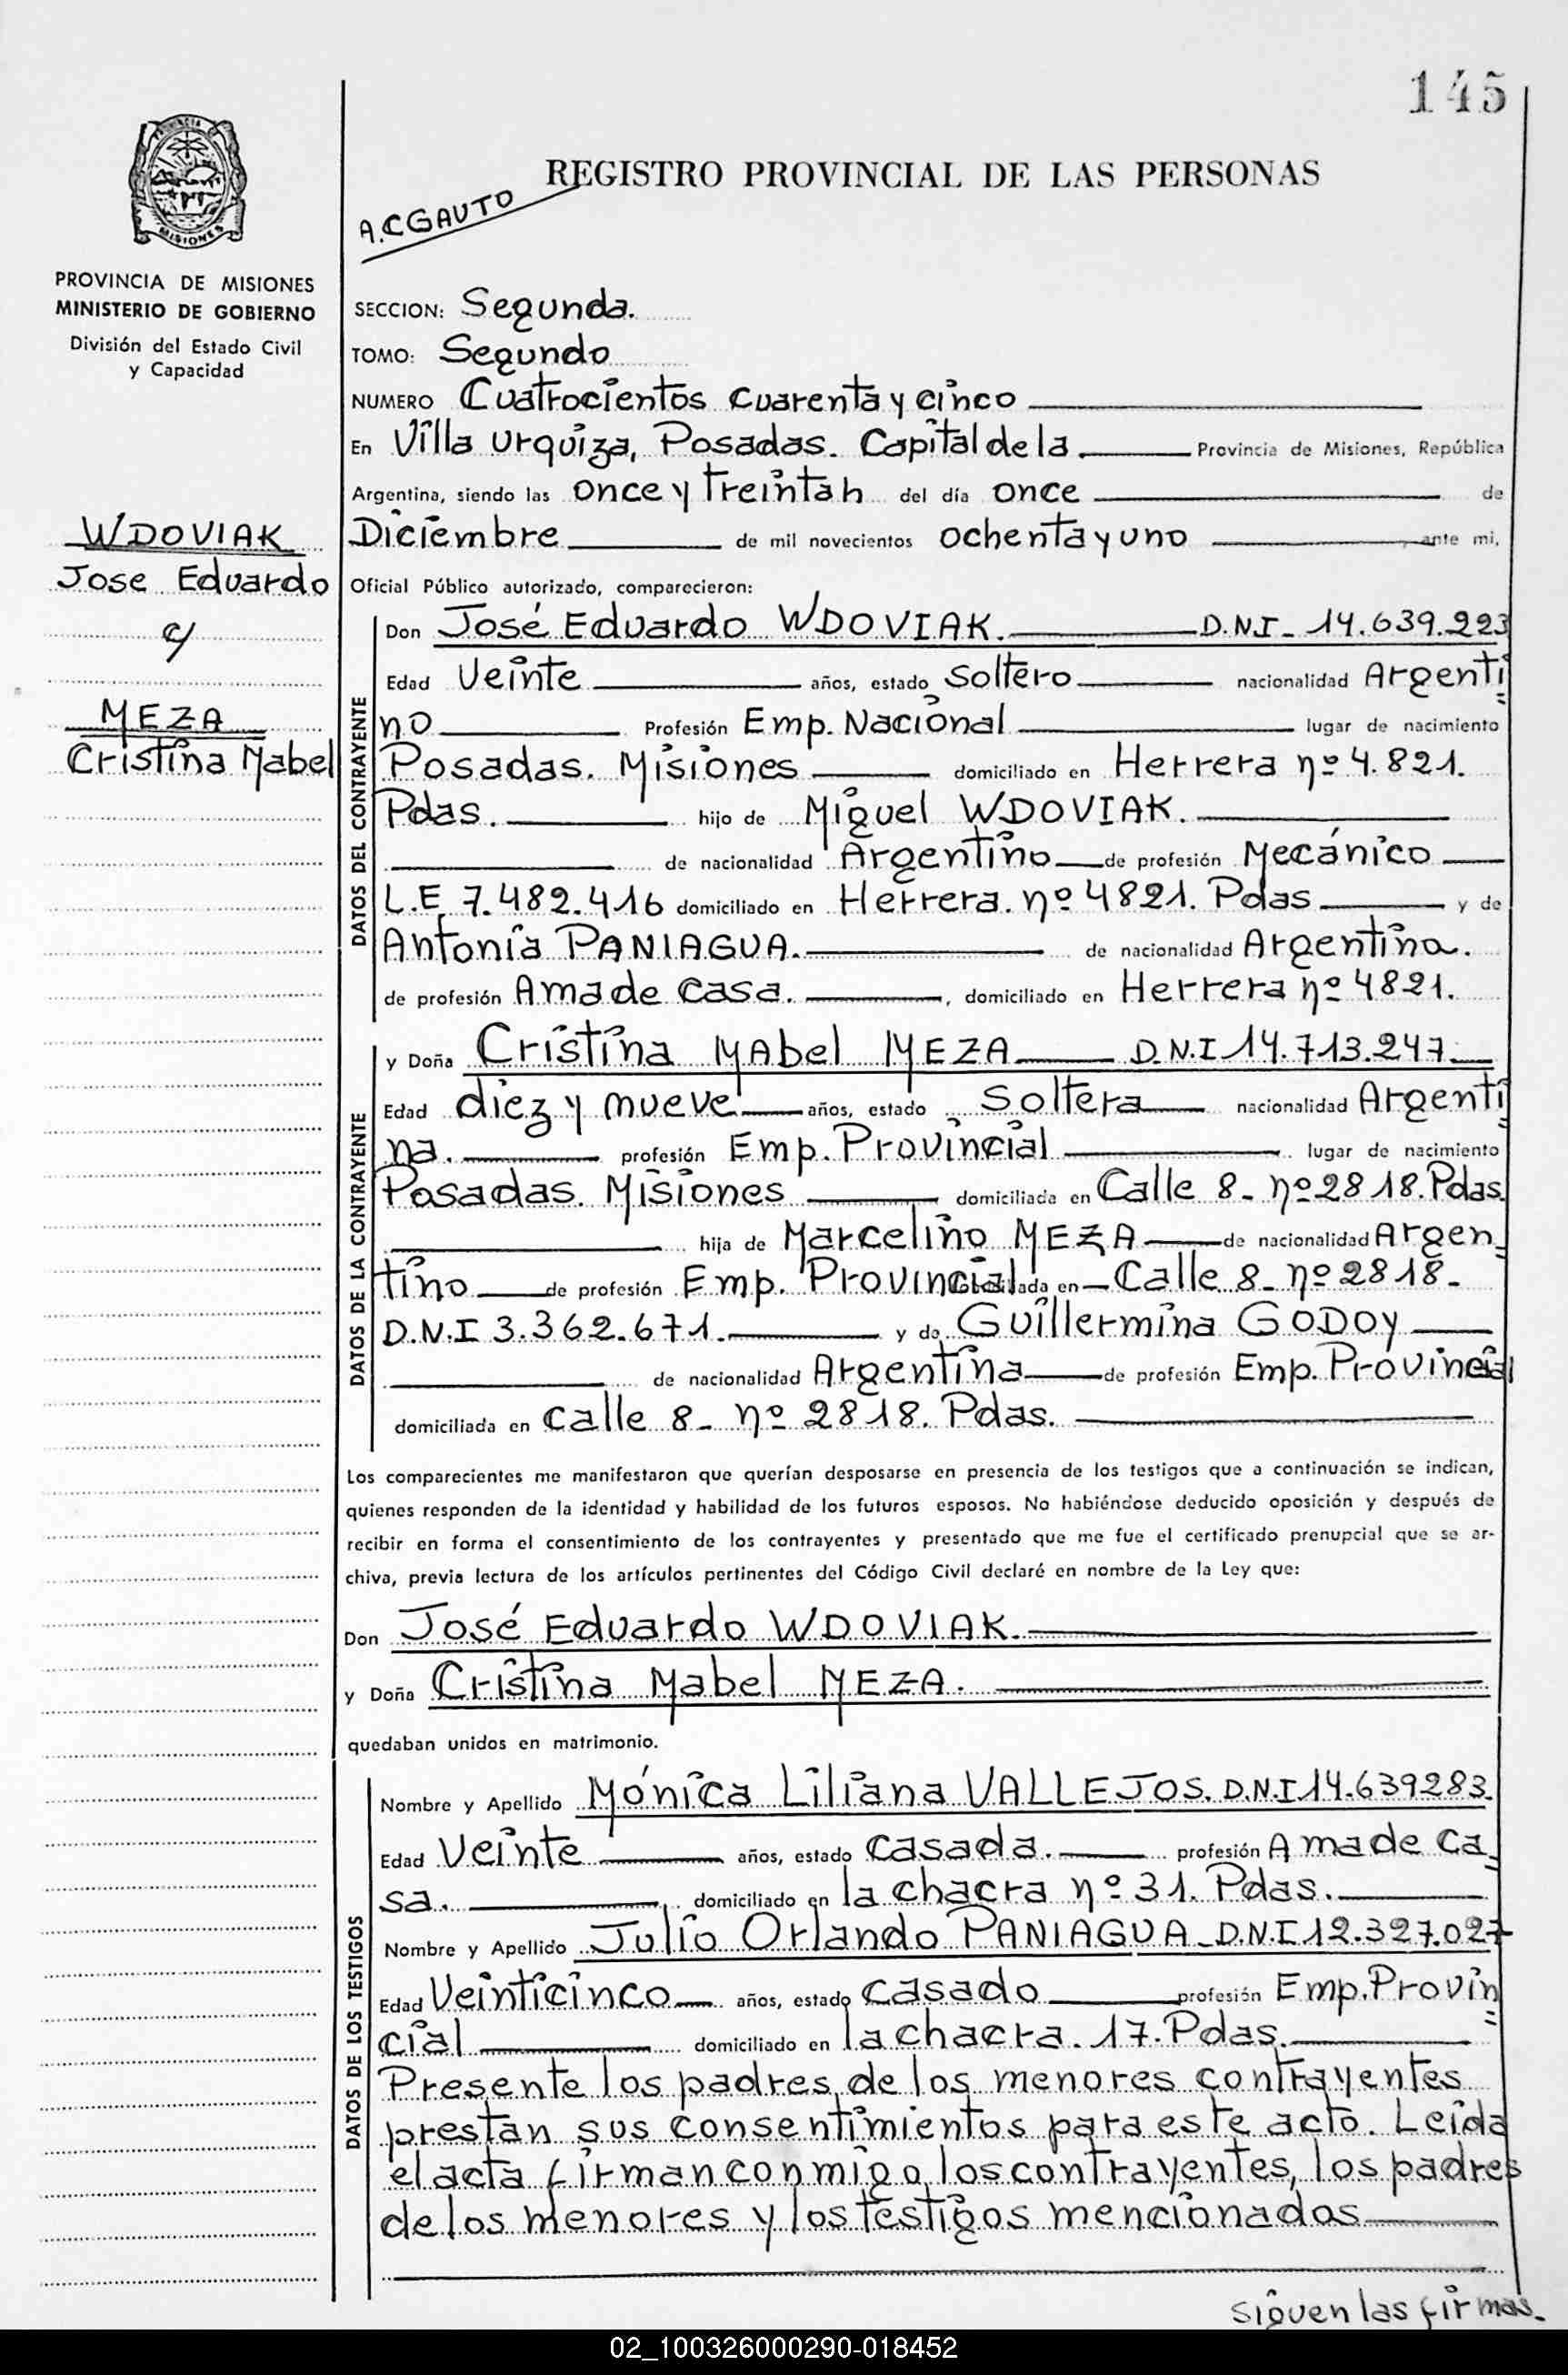 145
REGISTRO PROVINCIAL DE LAS PERSONAS
A.CGAUTO
PROVINCIA DE MISIONES
MINISTERIO DE GOBIERNO
División del Estado Civil
y Capacidad
SECCION: Segunda.
TOMO: Segundo
NUMERO Cuatrocientos cuarenta y cinco
En Villa Urquiza, Posadas. Capital de la Provincia de Misiones, República
Argentina, siendo las once y treinta h del día once de
Diciembre de mil novecientos ochenta y uno ante mi,
Oficial Público autorizado, comparecieron:
WDOVIAK
Jose Eduardo
c/
MEZA
Cristina Mabel
DATOS DEL CONTRAYENTE
Don José Eduardo WDOVIAK. D.N.I - 14.639.223
Edad Veinte años, estado Soltero nacionalidad Argenti
no Profesión Emp. Nacional lugar de nacimiento
Posadas. Misiones domiciliado en Herrera nº 4.821.
Pdas. hijo de Miguel WDOVIAK.
de nacionalidad Argentino de profesión Mecánico
L.E. 7.482.416 domiciliado en Herrera. nº 4821. Pdas y de
Antonia PANIAGUA. de nacionalidad Argentina.
de profesión Ama de casa. , domiciliado en Herrera nº 4821.
DATOS DE LA CONTRAYENTE
y Doña Cristina MAbel MEZA D.N.I 14.713.247
Edad diez y nueve años, estado Soltera nacionalidad Argenti
na. profesión Emp. Provincial lugar de nacimiento
Posadas. Misiones domiciliada en Calle 8 - nº 2818. Pdas.
hija de Marcelino MEZA de nacionalidad Argen
tino de profesión Emp. Provincial domiciliada en Calle 8 - nº 2818 -
D.N.I 3.362.671. y de Guillermina GODOY
de nacionalidad Argentina de profesión Emp. Provincial
domiciliada en calle 8 - nº 2818. Pdas.
Los comparecientes me manifestaron que querían desposarse en presencia de los testigos que a continuación se indican,
quienes responden de la identidad y habilidad de los futuros esposos. No habiéndose deducido oposición y después de
recibir en forma el consentimiento de los contrayentes y presentado que me fue el certificado prenupcial que se ar-
chiva, previa lectura de los artículos pertinentes del Código Civil declaré en nombre de la Ley que:
Don José Eduardo WDOVIAK.
y Doña Cristina Mabel MEZA.
quedaban unidos en matrimonio.
DATOS DE LOS TESTIGOS
Nombre y Apellido Mónica Liliana VALLEJOS. D.N.I 14.639283.
Edad Veinte años, estado casada. profesión Ama de ca
sa. domiciliado en la chacra nº 31. Pdas.
Nombre y Apellido Julio Orlando PANIAGUA - D.N.I 12.327.027
Edad Veinticinco años, estado casado profesión Emp. Provin
cial domiciliado en la chacra. 17. Pdas.
Presente los padres de los menores contrayentes
prestan sus consentimientos para este acto. Leida
el acta firman conmigo los contrayentes, los padres
de los menores y los testigos mencionados
siguen las firmas.
02_100326000290-018452